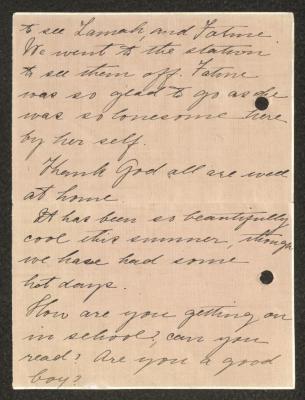 to see Lamah, and Fatme.
We went to the station
to see them off. Fatme
was so glad to go as she
was so lonesome here
by her self.
Thank God all are well
at home.
It has been so beautifully
cool this summer, though
we have had some
hot days.
How are you getting on
in school?, can you
read? Are you a good
boy?